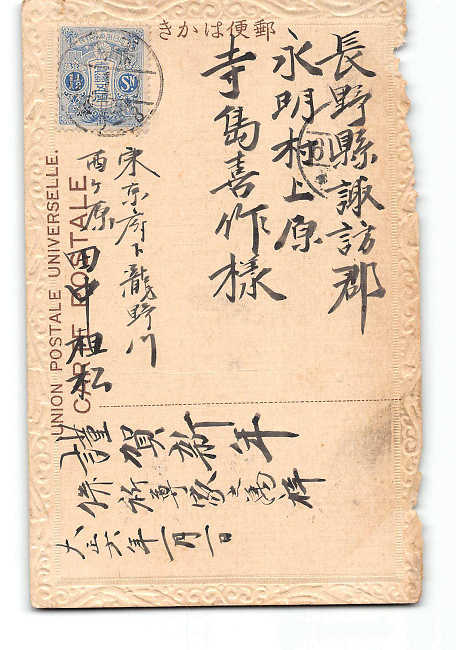 郵便はかき
1½ Sn.
長野縣諏訪郡
永明村上原
寺島喜作様
東京府下瀧野川
西ヶ原
田中祖松
UNION POSTALE UNIVERSELLE.
CARTE POSTALE
謹賀新年
併祈尊家之萬祥
大正六年一月一日